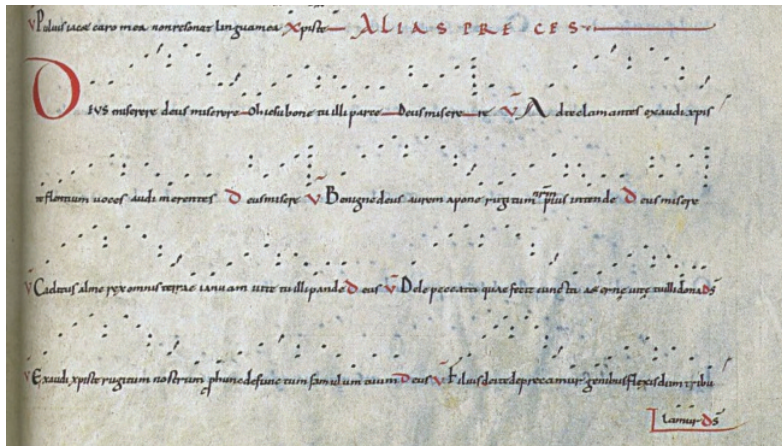 V Puluis iacet caro mea non resonat lingua mea Xpiste ALIAS PRECES
DEUS miserere deus miserere Oh iesu bone tu illi parce Deus miserere V Ad te clamantes exaudi xpis
te flentium uoces audi merentes Deus misere V Benigne deus aurem apone rugitum nrm pius intende Deus misere
V Caditus alme rex omnis terrae ianuam uite tu illi pande Deus V Dele peccata quae fecit cuncta ac uite tu illi dona Ds
V Exaudi xpiste rugitum nostrum p hunc defunctum famulum tuum Deus V Filius dei te deprecamur genibus flexis dum tribu
lamur Ds